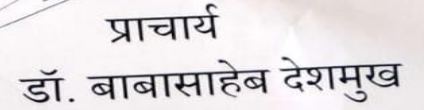 प्राचार्य
डॉ. बाबासाहेब देशमुख